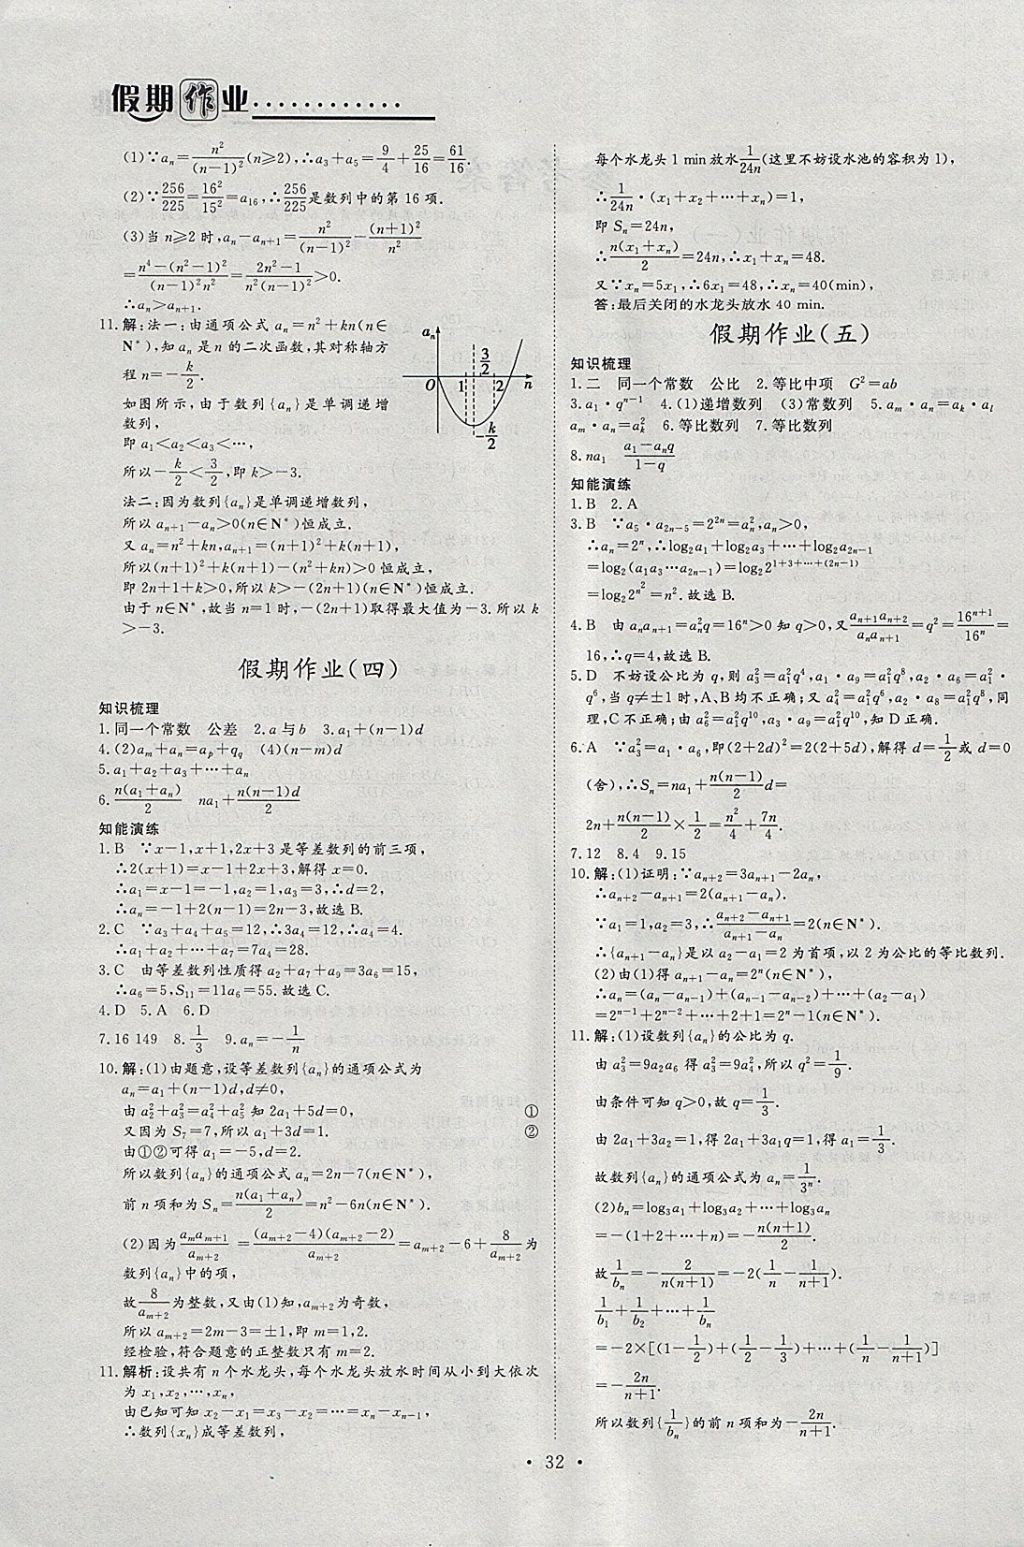 假期作业…………
(1)∵aₙ=n²/(n-1)²(n≥2),∴a₃+a₅=9/4+25/16=61/16.
(2)∵256/225=16²/15²=a₁₆,∴256/225是数列中的第 16 项.
(3)当 n≥2 时,aₙ-aₙ₊₁=n²/(n-1)²-(n+1)²/n²
=[n⁴-(n²-1)²]/[(n-1)²n²]=(2n²-1)/[n²(n-1)²]>0.
∴aₙ>aₙ₊₁.
11.解:法一:由通项公式 aₙ=n²+kn(n∈
N*),知 aₙ 是 n 的二次函数,其对称轴方
程 n=-k/2.
如图所示,由于数列{aₙ}是单调递增
数列,
即 a₁<a₂<a₃<…,
所以-k/2<3/2,即 k>-3.
aₙ
3/2
O 1 2 n
-k/2
法二:因为数列{aₙ}是单调递增数列,
所以 aₙ₊₁-aₙ>0(n∈N*)恒成立.
又 aₙ=n²+kn,aₙ₊₁=(n+1)²+k(n+1),
所以(n+1)²+k(n+1)-(n²+kn)>0 恒成立.
即 2n+1+k>0,所以 k>-(2n+1)(n∈N*)恒成立.
由于 n∈N*,故当 n=1 时,-(2n+1)取得最大值为-3.所以 k
>-3.
假期作业(四)
知识梳理
1.同一个常数 公差 2.a 与 b 3.a₁+(n-1)d
4.(2)aₘ+aₙ=aₚ+q_q (4)(n-m)d
5.a₁+a₂+a₃+…+aₙ
6.n(a₁+aₙ)/2 na₁+n(n-1)d/2
知能演练
1.B ∵x-1,x+1,2x+3 是等差数列的前三项,
∴2(x+1)=x-1+2x+3,解得 x=0.
∴a₁=x-1=-1,a₂=1,a₃=3,∴d=2.
∴aₙ=-1+2(n-1)=2n-3,故选 B.
2.C ∵a₃+a₄+a₅=12,∴3a₄=12,∴a₄=4.
∴a₁+a₂+…+a₇=7a₄=28.
3.C 由等差数列性质得 a₂+a₇+a₉=3a₆=15,
∴a₆=5,S₁₁=11a₆=55.故选 C.
4.D 5.A 6.D
7.16 149 8.1/3 9.aₙ=-1/n
10.解:(1)由题意,设等差数列{aₙ}的通项公式为
aₙ=a₁+(n-1)d,d≠0,
由 a₂²+a₃²=a₄²+a₅² 知 2a₁+5d=0. ①
又因为 S₇=7,所以 a₁+3d=1. ②
由①②可得 a₁=-5,d=2.
所以数列{aₙ}的通项公式 aₙ=2n-7(n∈N*),
前 n 项和为 Sₙ=n(a₁+aₙ)/2=n²-6n(n∈N*).
(2)因为aₘaₘ₊₁/aₘ₊₂=(aₘ₊₂-4)(aₘ₊₂-2)/aₘ₊₂=aₘ₊₂-6+8/aₘ₊₂为
数列{aₙ}中的项,
故8/aₘ₊₂为整数,又由(1)知,aₘ₊₂为奇数,
所以 aₘ₊₂=2m-3=±1,即 m=1,2.
经检验,符合题意的正整数只有 m=2.
11.解析:设共有 n 个水龙头,每个水龙头放水时间从小到大依次
为 x₁,x₂,…,xₙ,
由已知可知 x₂-x₁=x₃-x₂=…=xₙ-xₙ₋₁,
∴数列{xₙ}成等差数列,
每个水龙头 1 min 放水1/24n(这里不妨设水池的容积为 1),
∴1/24n·(x₁+x₂+…+xₙ)=1,
即 Sₙ=24n,
∴n(x₁+xₙ)/2=24n,∴x₁+xₙ=48.
又∵xₙ=5x₁,∴6x₁=48,∴xₙ=40(min),
答:最后关闭的水龙头放水 40 min.
假期作业(五)
知识梳理
1.二 同一个常数 公比 2.等比中项 G²=ab
3.a₁·qⁿ⁻¹ 4.(1)递增数列 (3)常数列 5.aₘ·aₙ=aₖ·aₗ
aₘ·aₙ=aₖ² 6.等比数列 7.等比数列
8.na₁ (a₁-aₙq)/(1-q)
知能演练
1.B 2.A
3.B ∵a₅·a₂ₙ₋₅=2²ⁿ=aₙ²,aₙ>0,
∴aₙ=2ⁿ,∴log₂a₁+log₂a₃+…+log₂a₂ₙ₋₁
=log₂(a₁a₃…a₂ₙ₋₁)=log₂2^(1+3+…+(2n-1))
=log₂2^(n²)=n².故选 B.
4.B 由 aₙaₙ₊₁=aₙ²q=16ⁿ>0 知 q>0,又aₙ₊₁aₙ₊₂/aₙaₙ₊₁=q²=16ⁿ⁺¹/16ⁿ=
16,∴q=4,故选 B.
5.D 不妨设公比为 q,则 a₃²=a₁²q⁴,a₁·a₉=a₁²q⁸,a₂·a₆=a₁²·
q⁶,当 q≠±1 时,A、B 均不正确;又 a₄²=a₁²q⁶,a₂·a₈=a₁²q⁸,同
理,C 不正确;由 a₆²=a₁²q¹⁰,a₃·a₉=a₁²q¹⁰,知 D 正确.
6.A ∵a₃²=a₁·a₆,即(2+2d)²=2(2+5d),解得 d=1/2或 d=0
(舍),∴Sₙ=na₁+n(n-1)/2d=
2n+n(n-1)/2×1/2=n²/4+7n/4.
7.12 8.4 9.15
10.解:(1)证明:∵aₙ₊₂=3aₙ₊₁-2aₙ,
∴aₙ₊₂-aₙ₊₁=2(aₙ₊₁-aₙ).
∵a₁=1,a₂=3,∴(aₙ₊₂-aₙ₊₁)/(aₙ₊₁-aₙ)=2(n∈N*).
∴{aₙ₊₁-aₙ}是以 a₂-a₁=2 为首项,以 2 为公比的等比数列.
(2)由(1)得 aₙ₊₁-aₙ=2ⁿ(n∈N*),
∴aₙ=(aₙ-aₙ₋₁)+(aₙ₋₁-aₙ₋₂)+…+(a₂-a₁)
=2ⁿ⁻¹+2ⁿ⁻²+…+2+1=2ⁿ-1(n∈N*).
11.解:(1)设数列{aₙ}的公比为 q.
由 a₃²=9a₂a₆ 得 a₃²=9a₄²,所以 q²=1/9.
由条件可知 q>0,故 q=1/3.
由 2a₁+3a₂=1,得 2a₁+3a₁q=1,得 a₁=1/3.
故数列{aₙ}的通项公式为 aₙ=1/3ⁿ.
(2)bₙ=log₃a₁+log₃a₂+…+log₃aₙ
=-(1+2+…+n)=-n(n+1)/2.
故1/bₙ=-2/n(n+1)=-2(1/n-1/(n+1)).
1/b₁+1/b₂+…+1/bₙ
=-2×[(1-1/2)+(1/2-1/3)+…+(1/n-1/(n+1))]
=-2n/(n+1).
所以数列{1/bₙ}的前 n 项和为-2n/(n+1).
·32·